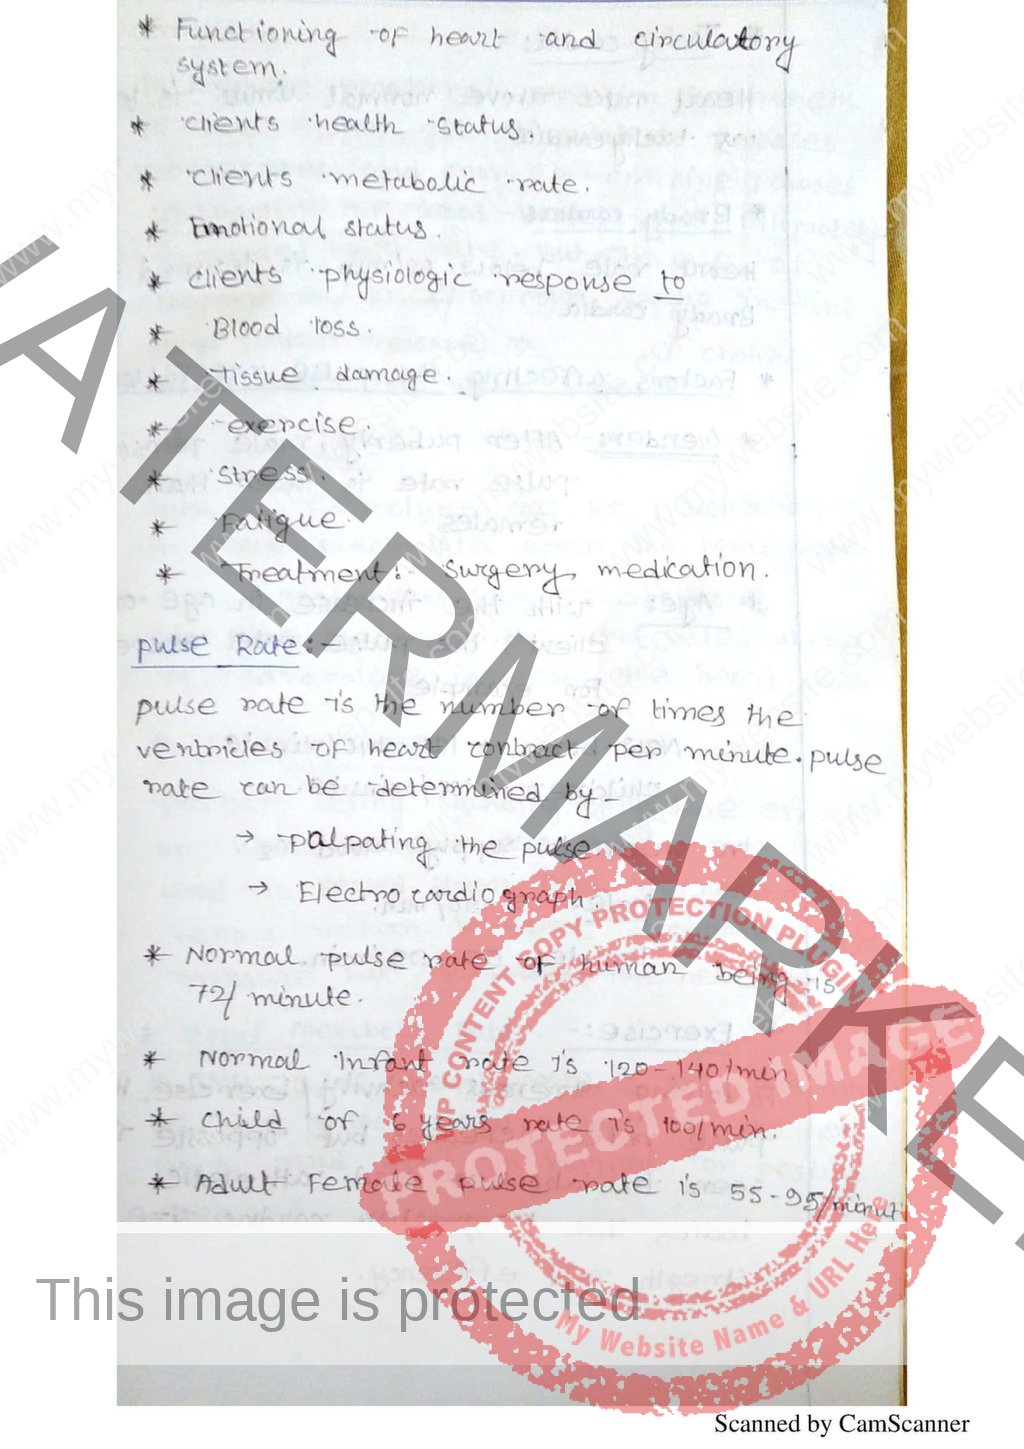 * Functioning of heart and circulatory
system.
* clients health status.
* clients metabolic rate.
* Emotional status.
* clients physiologic response to
* Blood loss.
* Tissue damage.
* exercise.
* Stress.
* Fatigue.
* Treatment:- Surgery, medication.
pulse Rate:-
pulse rate is the number of times the
ventricles of heart contract per minute. pulse
rate can be determined by-
→ palpating the pulse
→ Electro cardiograph.
* Normal pulse rate of human being is
72/ minute.
* Normal Infant rate is 120-140/min
* child of 6 years rate is 100/min.
* Adult Female pulse rate is 55-95/minut
WATERMARKED
WP CONTENT COPY PROTECTION PLUGIN
PROTECTED IMAGE
My Website Name & URL Here
This image is protected
Scanned by CamScanner